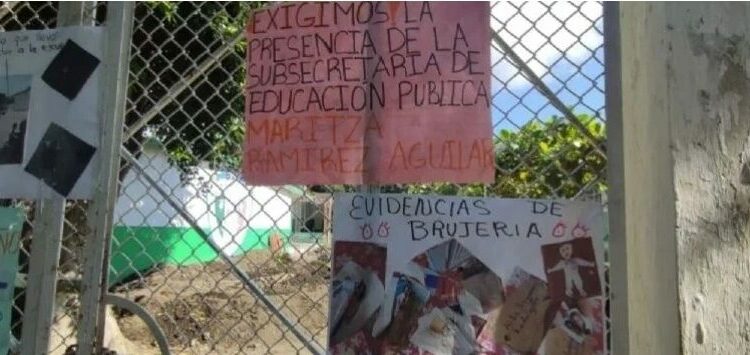 EXIGIMOS LA
PRESENCIA DE LA
SUBSECRETARIA DE
EDUCACIÓN PUBLICA
MARITZA
RAMIREZ AGUILAR
EVIDENCIAS DE
BRUJERIA